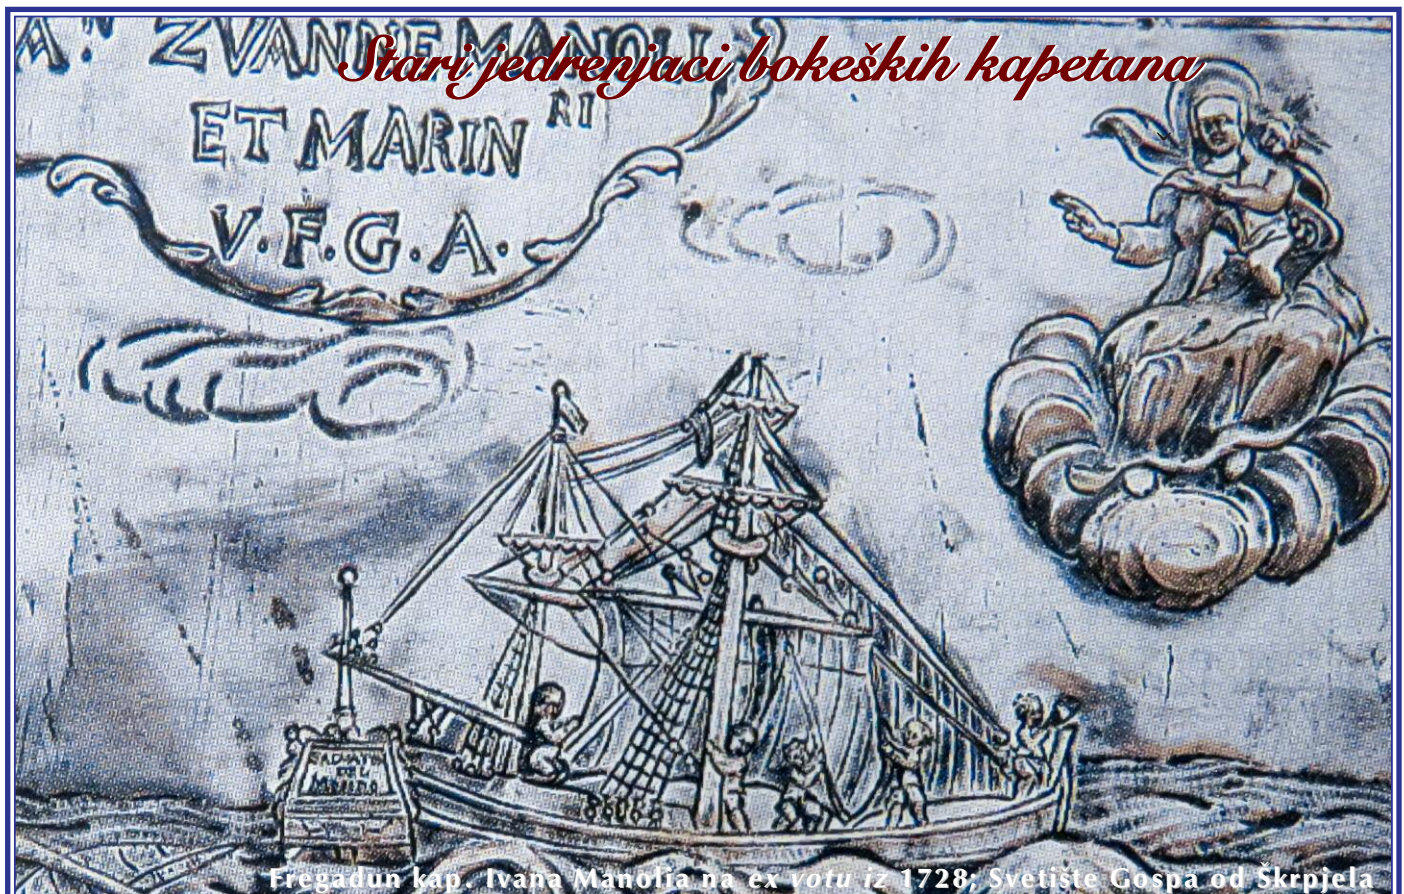 Stari jedrenjaci bokeških kapetana
A.ᴺ ZVANNE MANOLI
ET MARIN ᴿᴵ
V.F.G.A.
DEL
Fregadun kap. Ivana Manolia na ex votu iz 1728; Svetište Gospa od Škrpjela